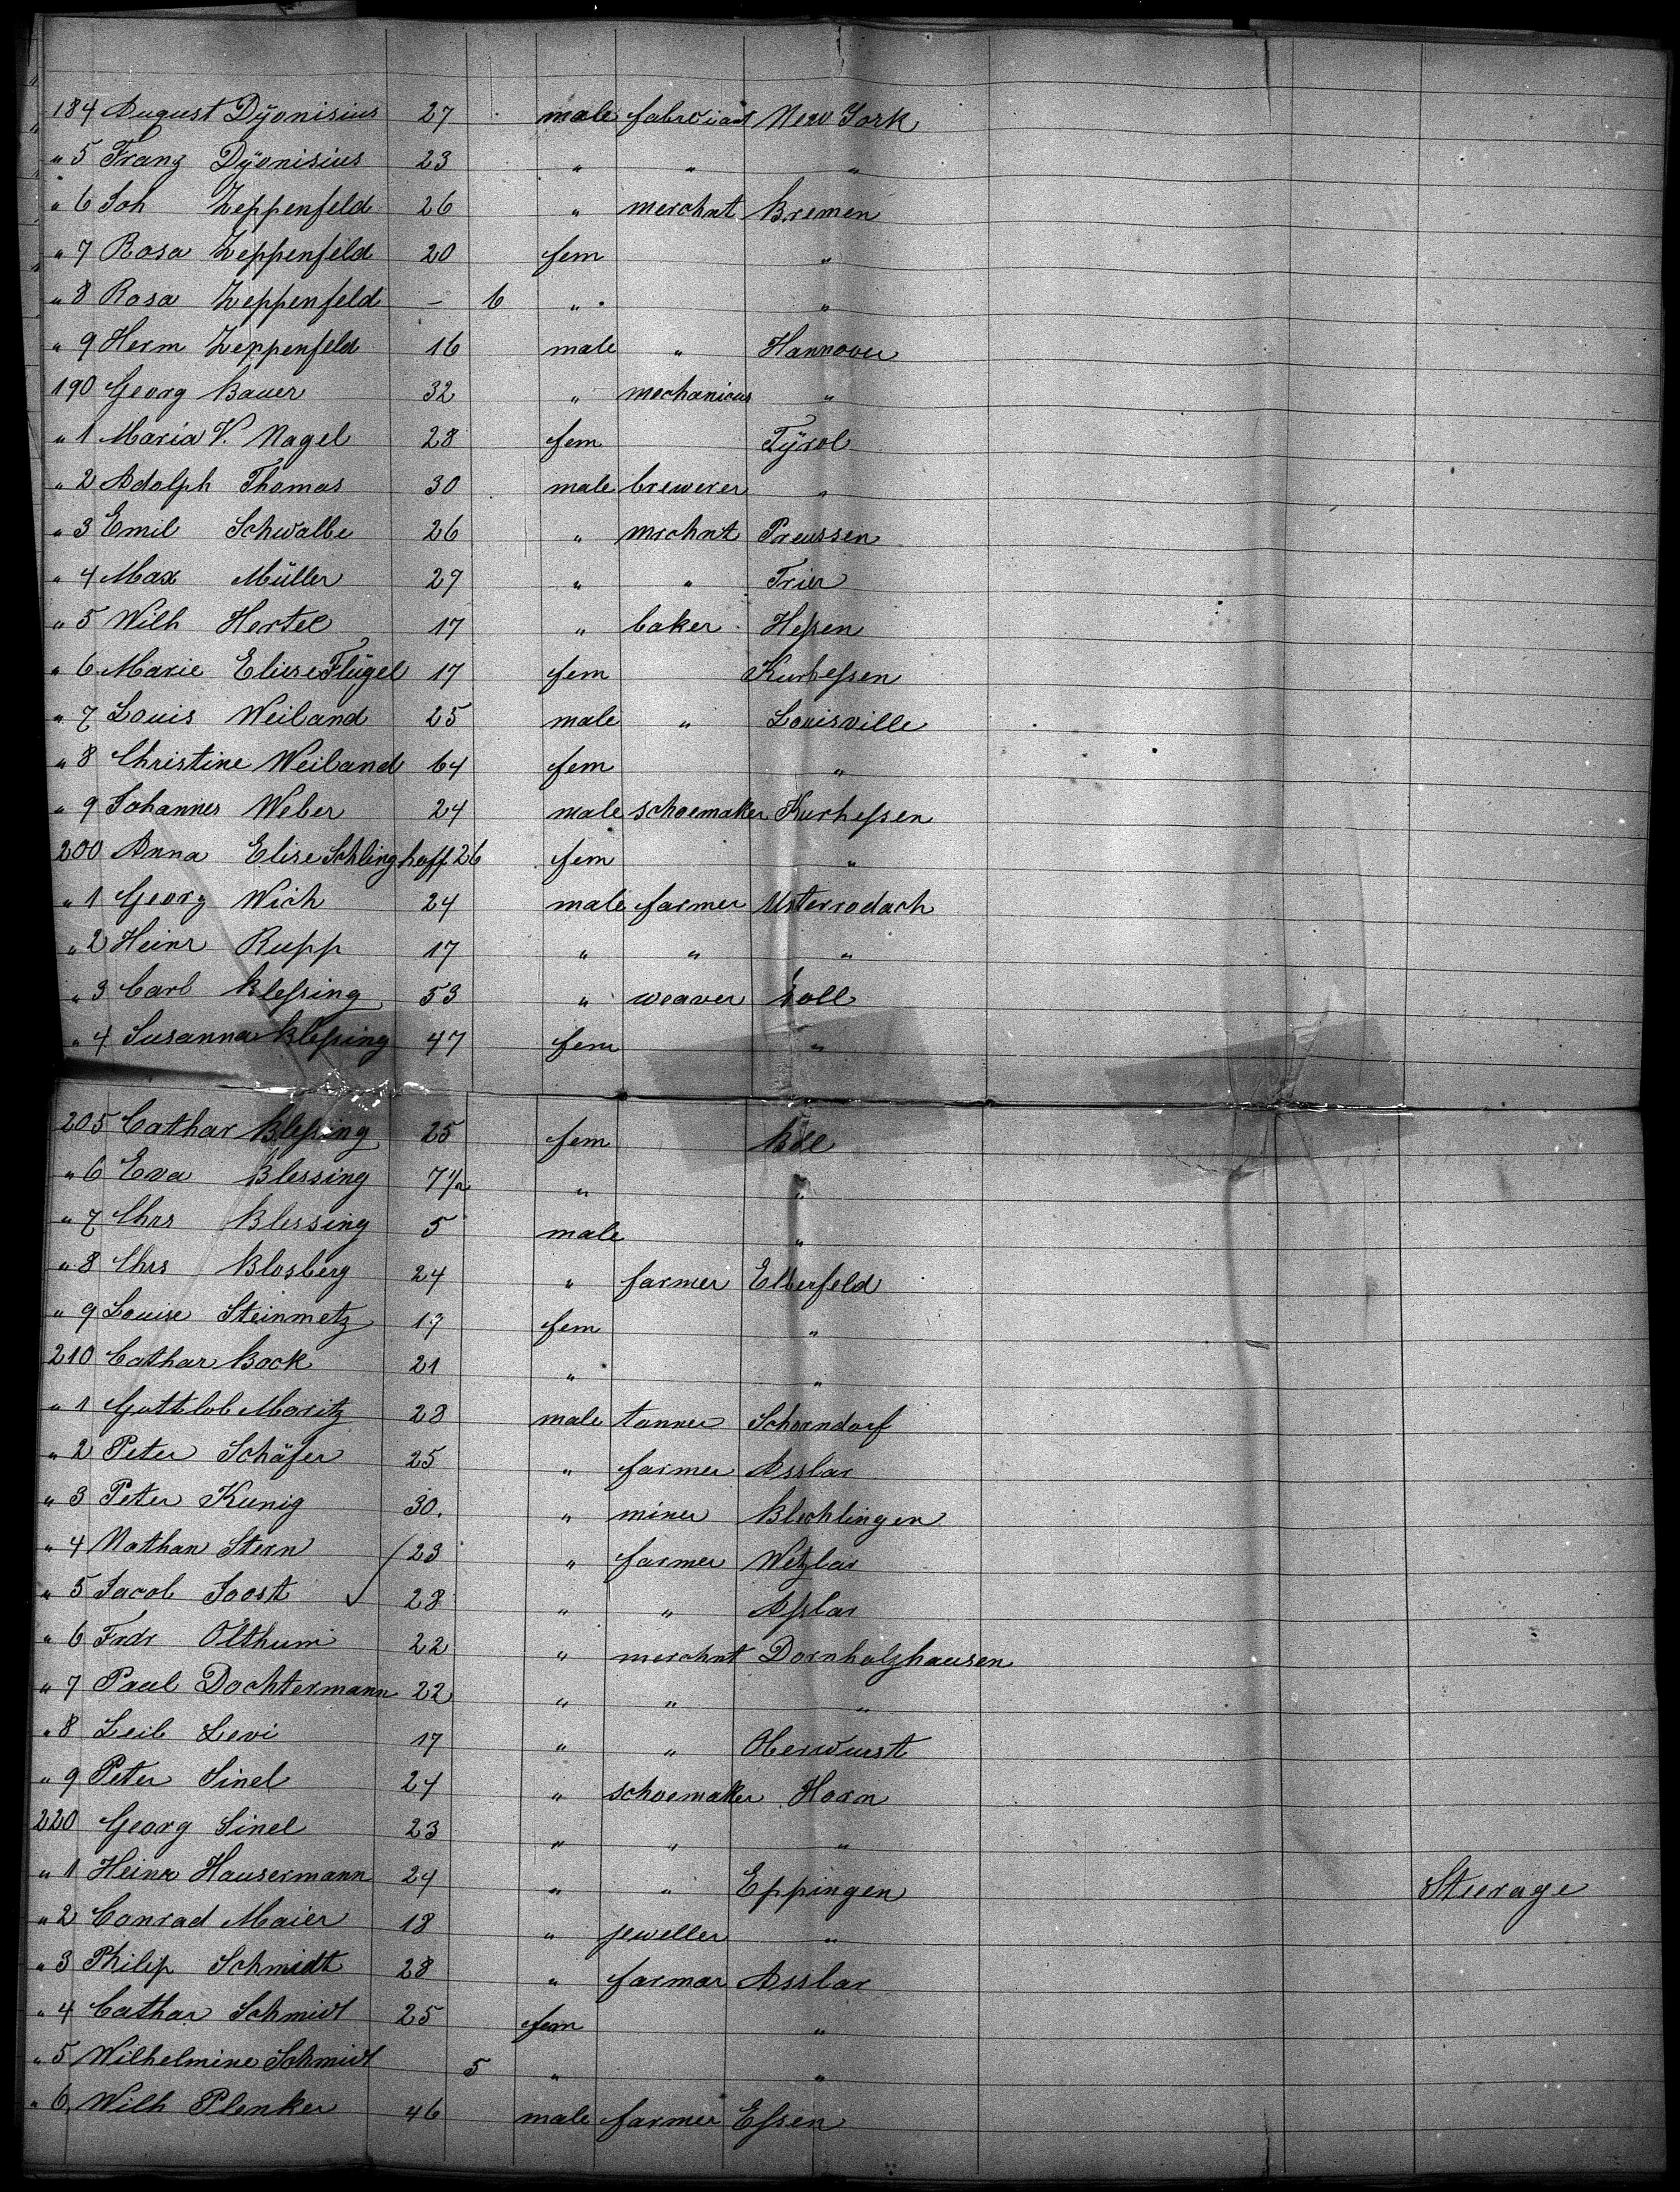 184 August Dÿonisius 27 male fabricant New York
" 5 Franz Dÿonisius 23 " " "
" 6 Joh Zeppenfeld 26 " merchnt Bremen
" 7 Rosa Zeppenfeld 20 fem "
" 8 Rosa Zeppenfeld – 6 " "
" 9 Herm Zeppenfeld 16 male " Hannover
190 Georg Bauer 32 " mechanicus "
" 1 Maria V. Nagel 28 fem Tÿrol
" 2 Adolph Thomas 30 male brewerer "
" 3 Emil Schwalbe 26 " mrchnt Preussen
" 4 Max Müller 29 " " Trier
" 5 Wilh Hertel 17 " baker Heſsen
" 6 Marie Elise Flügel 17 fem Kurheſsen
" 7 Louis Weiland 25 male " Louisville
" 8 Christine Weiland 64 fem "
" 9 Johannes Weber 24 male schoemaker Kurheſsen
200 Anna Elise Schlinghoff 26 fem "
" 1 Georg Wich 24 male farmer Usterrodach
" 2 Heinr Rupp 17 " " "
" 3 Carl Bleſsing 53 " weaver Boll
" 4 Susanna Bleſsing 47 fem "
205 Cathar Bleſsing 25 fem Boll
" 6 Eva Blessing 7 1/2 " "
" 7 Chrs Blessing 5 male "
" 8 Chrs Blosberg 24 " farmer Elberfeld
" 9 Louise Steinmetz 19 fem "
210 Cathar Bock 21 " "
" 1 Gottlob Moritz 28 male tanner Schorndorf
" 2 Peter Schäfer 25 " farmer Asslar
" 3 Peter Kunig 30. " miner Blechlingen
" 4 Nathan Stern 23 " farmer Wetzlar
" 5 Jacob Joost 28 " " Aſslar
" 6 Frdr Ölthumi 22 " merchnt Dornholzhausen
" 7 Paul Dochtermann 22 " " "
" 8 Leib Levi 17 " " Oberwurst
" 9 Peter Sinel 24 " schoemaker Horn
220 Georg Sinel 23 " " "
" 1 Heinr Hausermann 24 " " Eppingen Steerage
" 2 Conrad Maier 18 " jeweller "
" 3 Philip Schmidt 28 " farmar Asslar
" 4 Cathar Schmidt 25 fem "
" 5 Wilhelmine Schmidt 5 " "
" 6 Wilh Plenker 46 male farmer Eſsen